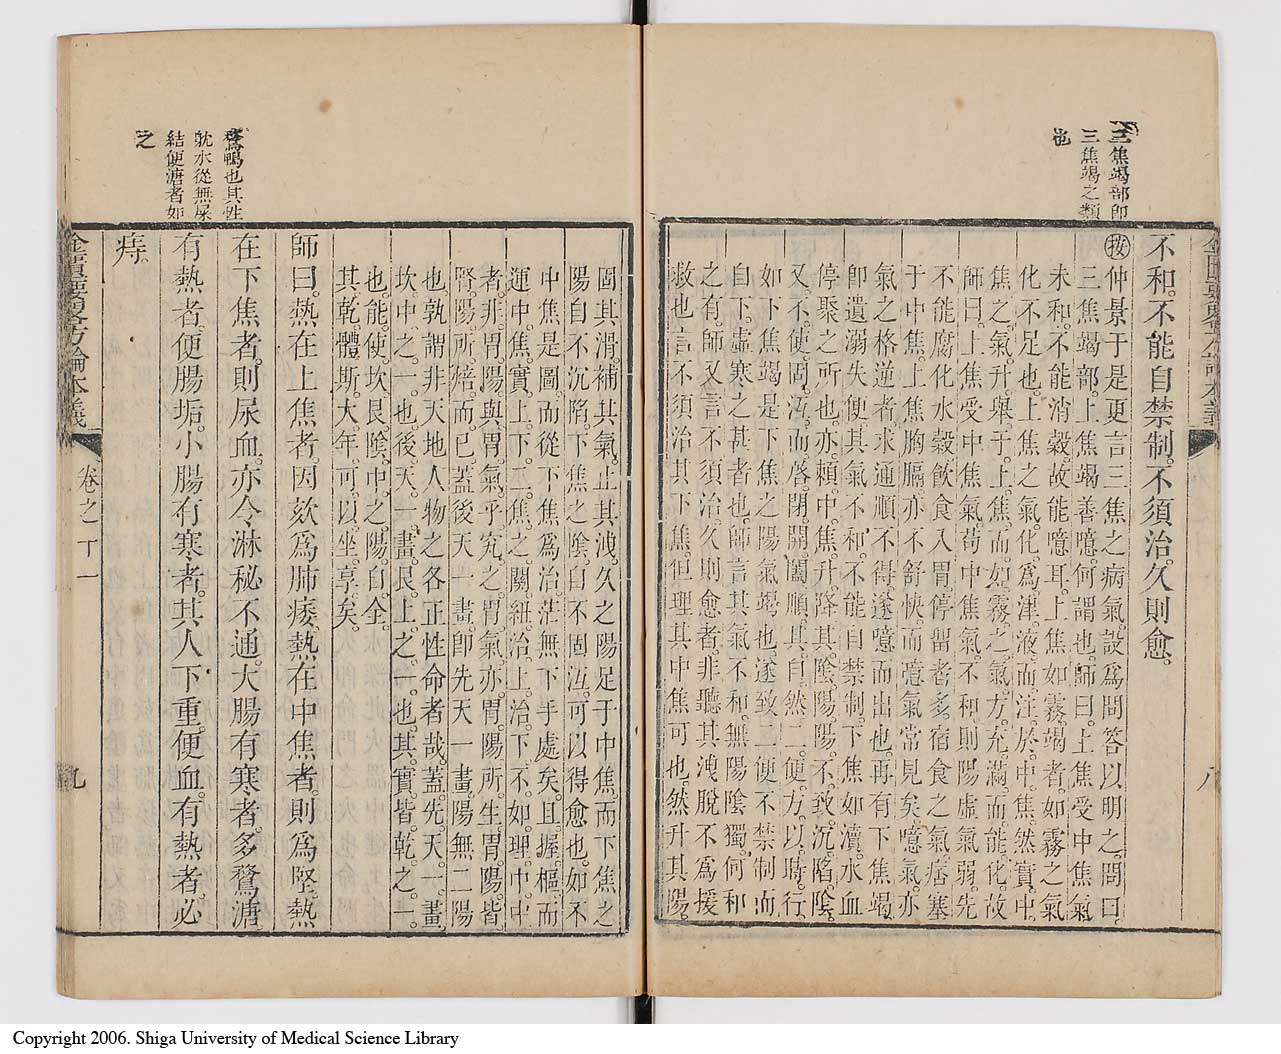 三焦竭部即
三焦竭之類
也
不和不能自禁制。不須治。久則愈。
按仲景于是更言三焦之病氣。設爲問答以明之。問曰。
三焦竭部。上焦竭善噫。何謂也。師曰。上焦受中焦氣
未和。不能消穀。故能噫耳。上焦如霧。竭者。如霧之氣
化不足也。上焦之氣化。爲津液。而注於中焦。然實中
焦之氣。升舉于上焦。而如霧之氣。方充滿而能化。故
師曰。上焦受中焦氣。苟中焦氣不和。則陽虛氣弱。先
不能腐化水穀。飲食入胃。停留者多。宿食之氣。痞塞
于中焦。上焦胸膈亦不舒快。而噫氣常見矣。噫氣。亦
氣之格逆者。求通順不得。遂噫而出也。再有下焦竭。
卽遺溺失便。其氣不和。不能自禁制。下焦如瀆。水血
停聚之所也。亦賴中焦。升降其陰陽。陽不致沉陷。陰
又不使固沍。而啓閉開闔。順其自然。二便方以時行。
如下焦竭。是下焦之陽氣竭也。遂致二便不禁制。而
自下。虛寒之甚者也。師言其氣不和。無陽陰獨。何和
之有。師又言不須治。久則愈者。非聽其洩脫不爲援
救也。言不須治其下焦。但理其中焦可也。然升其陽。
八
鶩鴨也其性
躭水從無屎
結便溏者如
之
固其滑。補其氣。止其洩。久之陽足于中焦。而下焦之
陽自不沉陷。下焦之陰。自不固沍。可以得愈也。如不
中焦是圖。而從下焦爲治。茫無下手處矣。且握樞而
運中焦。實上下二焦之關紐。治上治下。不如理中。中
者。非胃陽與胃氣乎。究之胃氣。亦胃陽所生。胃陽皆
腎陽所焙而已。蓋後天一畫。卽先天一畫。陽無二陽
也。孰謂非天地人物之各正性命者哉。蓋先天一畫。
坎中之一也。後天一畫。艮上之一也。其實皆乾之一
也。能使坎艮陰中之陽自全。
其乾體斯大年可以坐享矣。
師曰。熱在上焦者。因欬爲肺痿。熱在中焦者。則爲堅。熱
在下焦者。則尿血。亦令淋秘不通。大腸有寒者。多鶩溏。
有熱者。便腸垢。小腸有寒者。其人下重。便血。有熱者。必
痔。
金匱要畧方論本義
卷之上
九
Copyright 2006. Shiga University of Medical Science Library